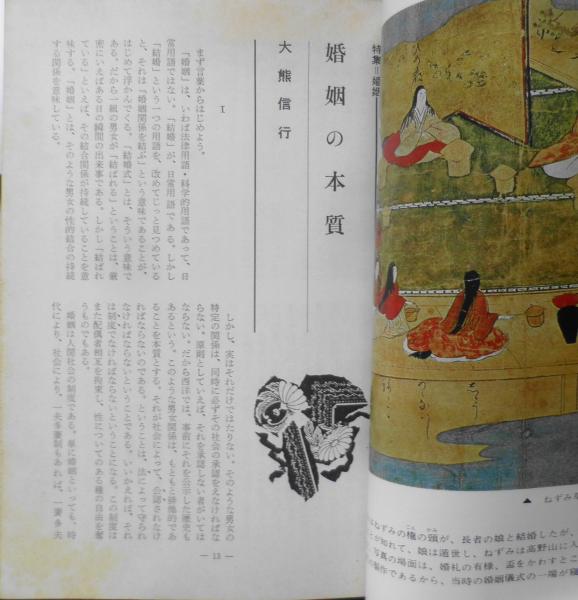 特集=婚姻
婚姻の本質
大熊信行
I
まず言葉からはじめよう。
「婚姻」は、いわば法律用語・科学的用語であって、日
常用語ではない。「結婚」が、日常用語である。しかし
「結婚」という一つの用語を、改めてじっと見つめている
と、それは「婚姻関係を結ぶ」という意味であることが、
はじめて浮かんでくる。「結婚式」とは、そういう意味で
ある。だから一組の男女が「結ばれる」ということは、厳
密にいえばある日の瞬間の出来事である。しかし「結ばれ
ている」といえば、その結合関係が持続していることを意
味する。「婚姻」とは、そのような男女の性的結合の持続
する関係を意味している。
しかし、実はそれだけではたりない。そのような男女の
特定の関係は、同時に必ずその社会の承認をえなければな
らない。原則としていえば、それを承認しない者がいては
ならない。だから西洋では、事前にそれを公示した歴史も
あるという。このような男女関係は、もともと排他的であ
ることを本質とする。それが社会によって、公認されなけ
ればならないのである。ということは、法によって守られ
なければならないということである。いいかえれば、それ
は制度でなければならないということになる。この制度は
また配偶者相互を拘束し、性についてのある種の自由を奪
うものでもある。
婚姻は人間社会の制度である。単に婚姻といっても、時
代により、社会により、一夫多妻制もあれば、一妻多夫
— 13 —
▲ ねずみ
ねずみの権の頭が、長者の娘と結婚したが、
が知れて、娘は遁世し、ねずみは高野山に入
写真の場面は、婚礼の有様、盃をかわすとこ
製作であるから、当時の婚姻儀式の一場が